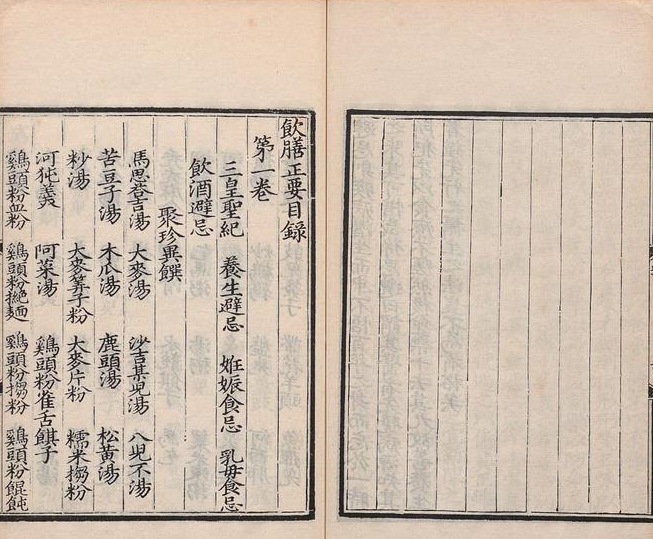 飲膳正要目錄
第一卷
三皇聖紀 養生避忌 姙娠食忌 乳母食忌
飲酒避忌
聚珍異饌
馬思荅吉湯 大麥湯 沙吉某児湯 八児不湯
苦豆子湯 木瓜湯 鹿頭湯 松黃湯
粆湯 大麥筭子粉 大麥片粉 糯米搊粉
河㹠羹 阿菜湯 鷄頭粉雀舌子
鷄頭粉血粉 鷄頭粉撧麵 鷄頭粉搊粉 鷄頭粉餛飩